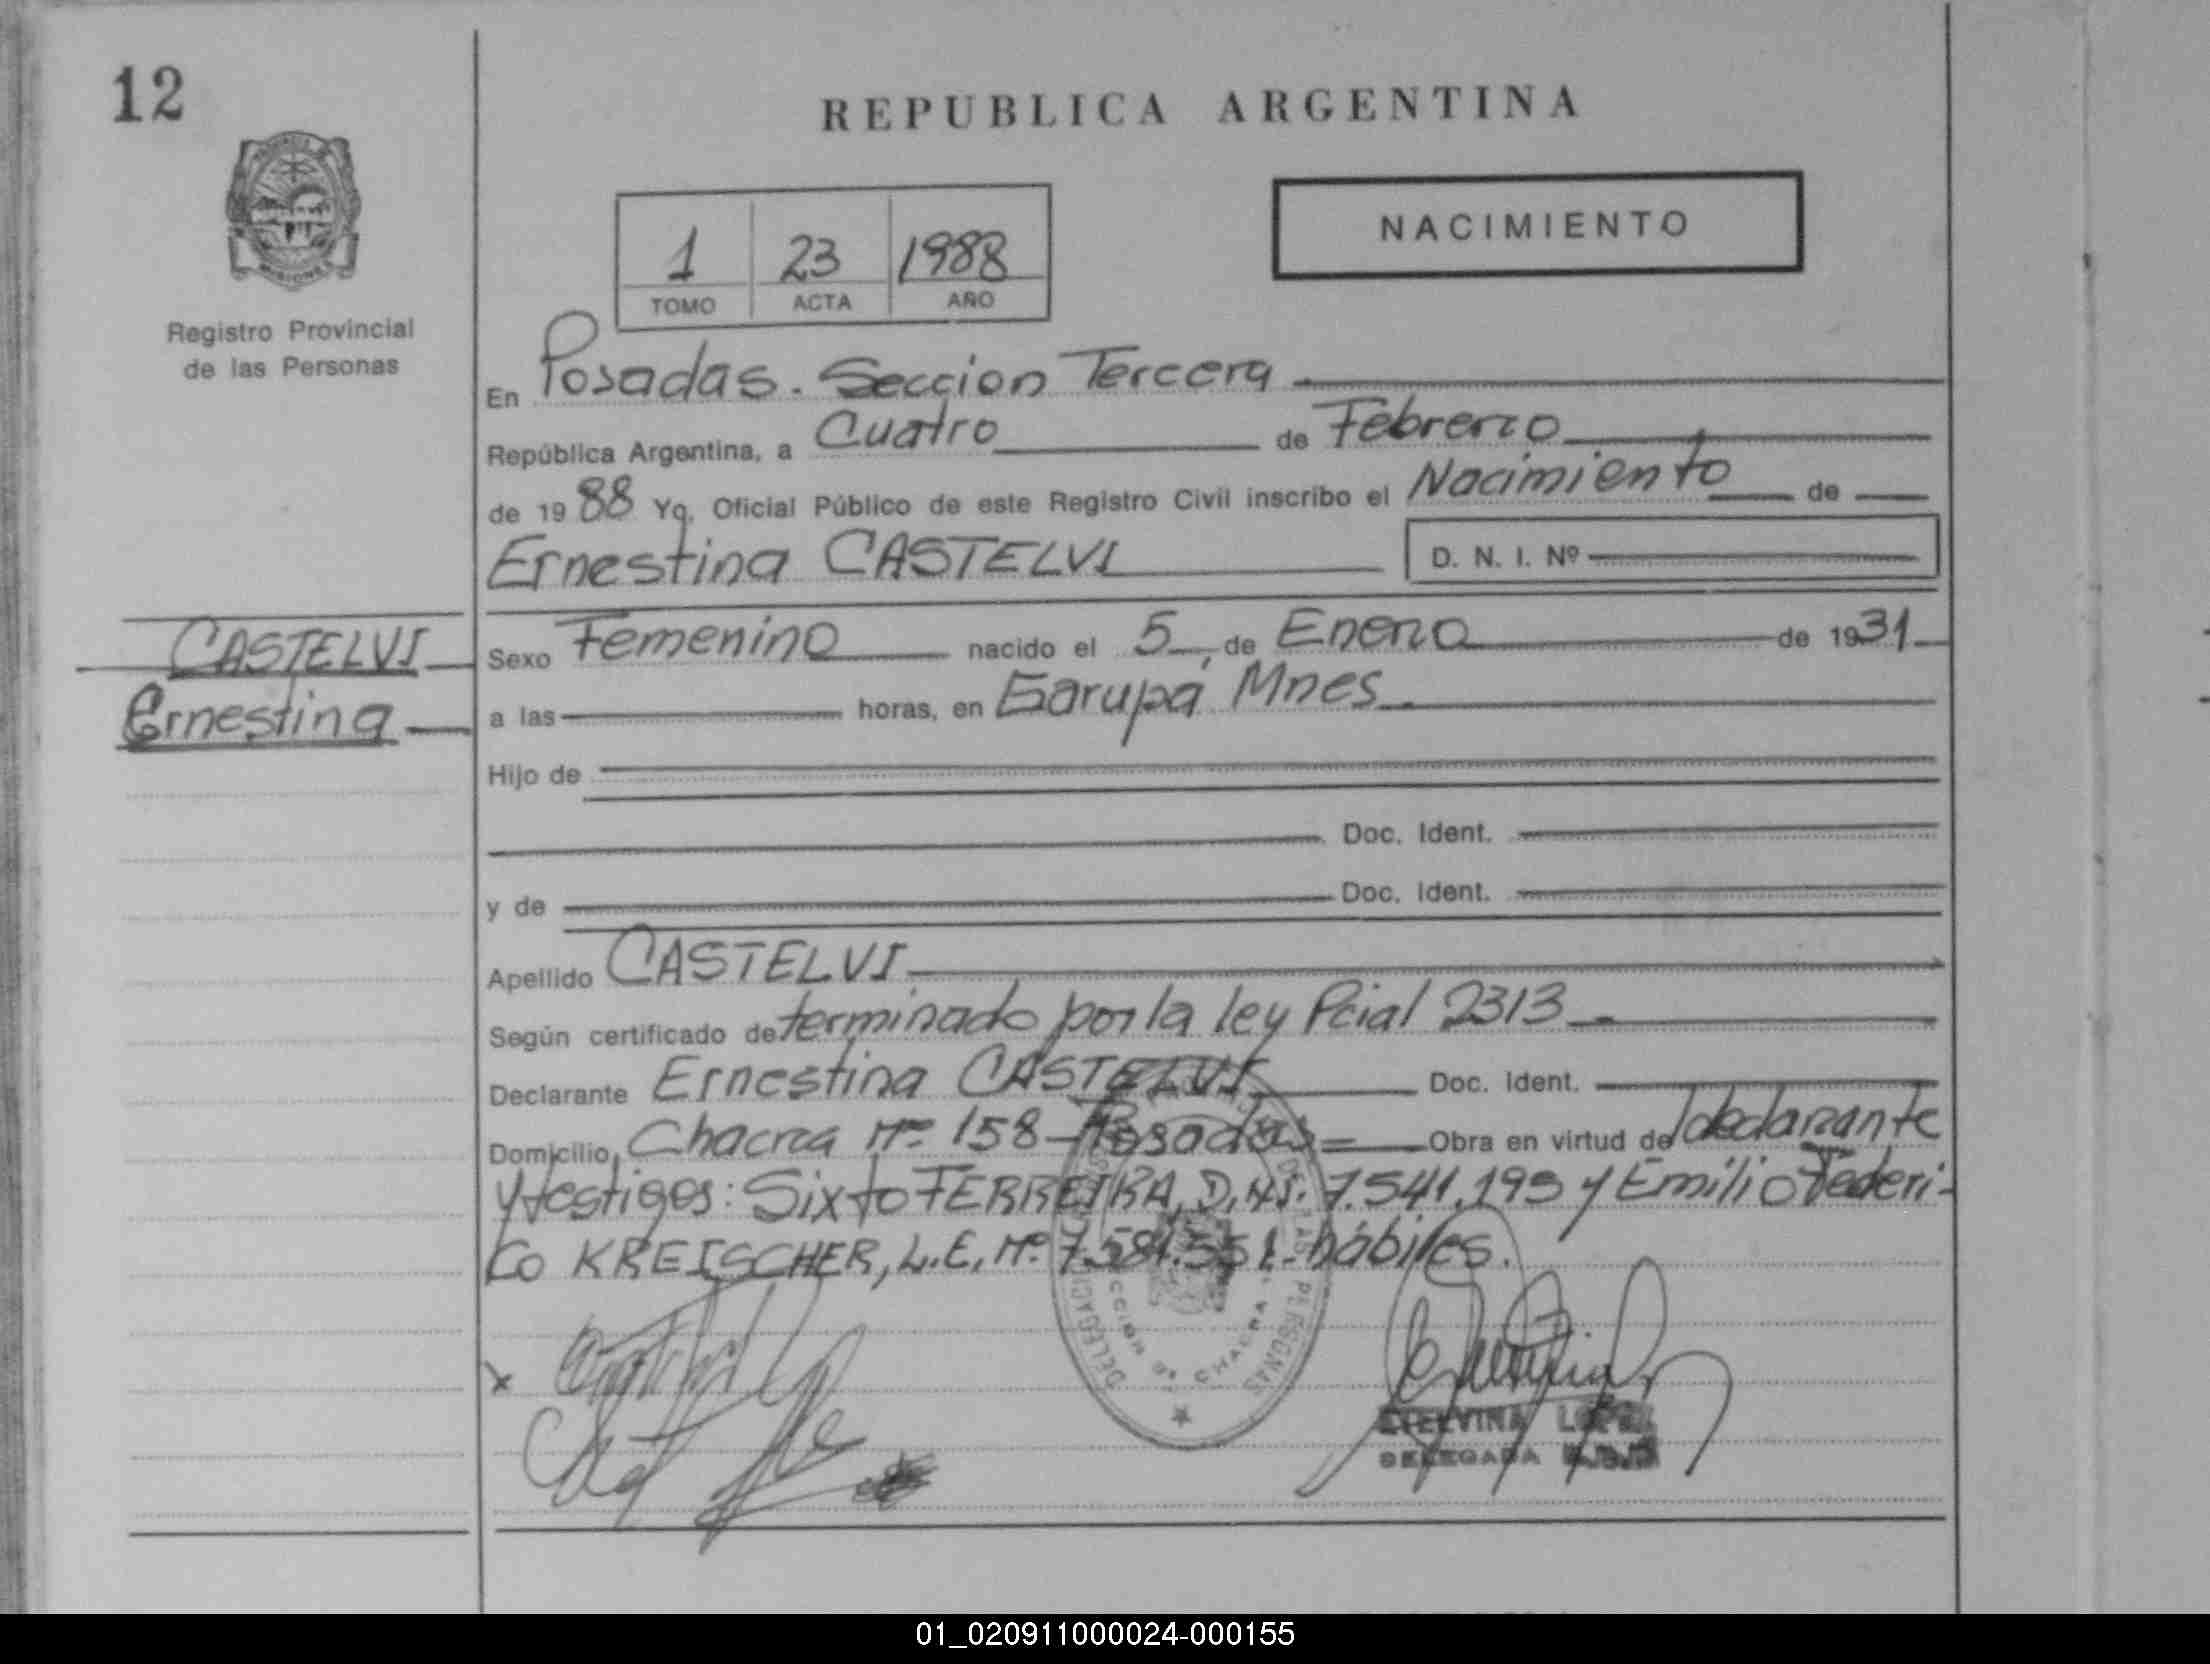 12
REPUBLICA ARGENTINA
NACIMIENTO
1 23 1988
TOMO ACTA AÑO
MISIONES
Registro Provincial
de las Personas
En Posadas. Seccion Tercera
República Argentina, a Cuatro de Febrero
de 1988 Yo, Oficial Público de este Registro Civil inscribo el Nacimiento de
Ernestina CASTELVI D. N. I. Nº
CASTELVI
Ernestina
Sexo Femenino nacido el 5 de Enero de 1931
a las horas, en Garupá, Mnes
Hijo de
Doc. Ident.
y de Doc. Ident.
Apellido CASTELVI
Según certificado determinado por la ley Pcial 2313
Declarante Ernestina CASTELVI Doc. Ident.
Domicilio Chacra Nº 158 - Posadas Obra en virtud de declarante
y testigos: Sixto FERREIRA, D.N.I. 7.541.195 y Emilio Federi-
co KREISCHER, L.E. Nº 7.584.551. hábiles.
DE LAS PERSONAS
CHACRA
x
ETELVINA LOPEZ
DELEGADA
01_020911000024-000155